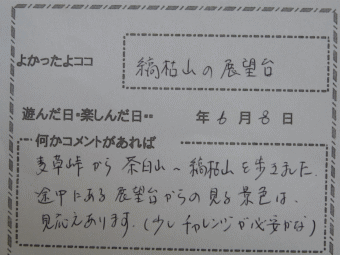 よかったよココ
縞枯山の展望台
遊んだ日・楽しんだ日・・ 年 6 月 8 日
何かコメントがあれば
麦草峠から 茶臼山〜縞枯山を歩きました.
途中にある展望台からの見る景色は、
見応えあります.(少しチャレンジが必要かな)